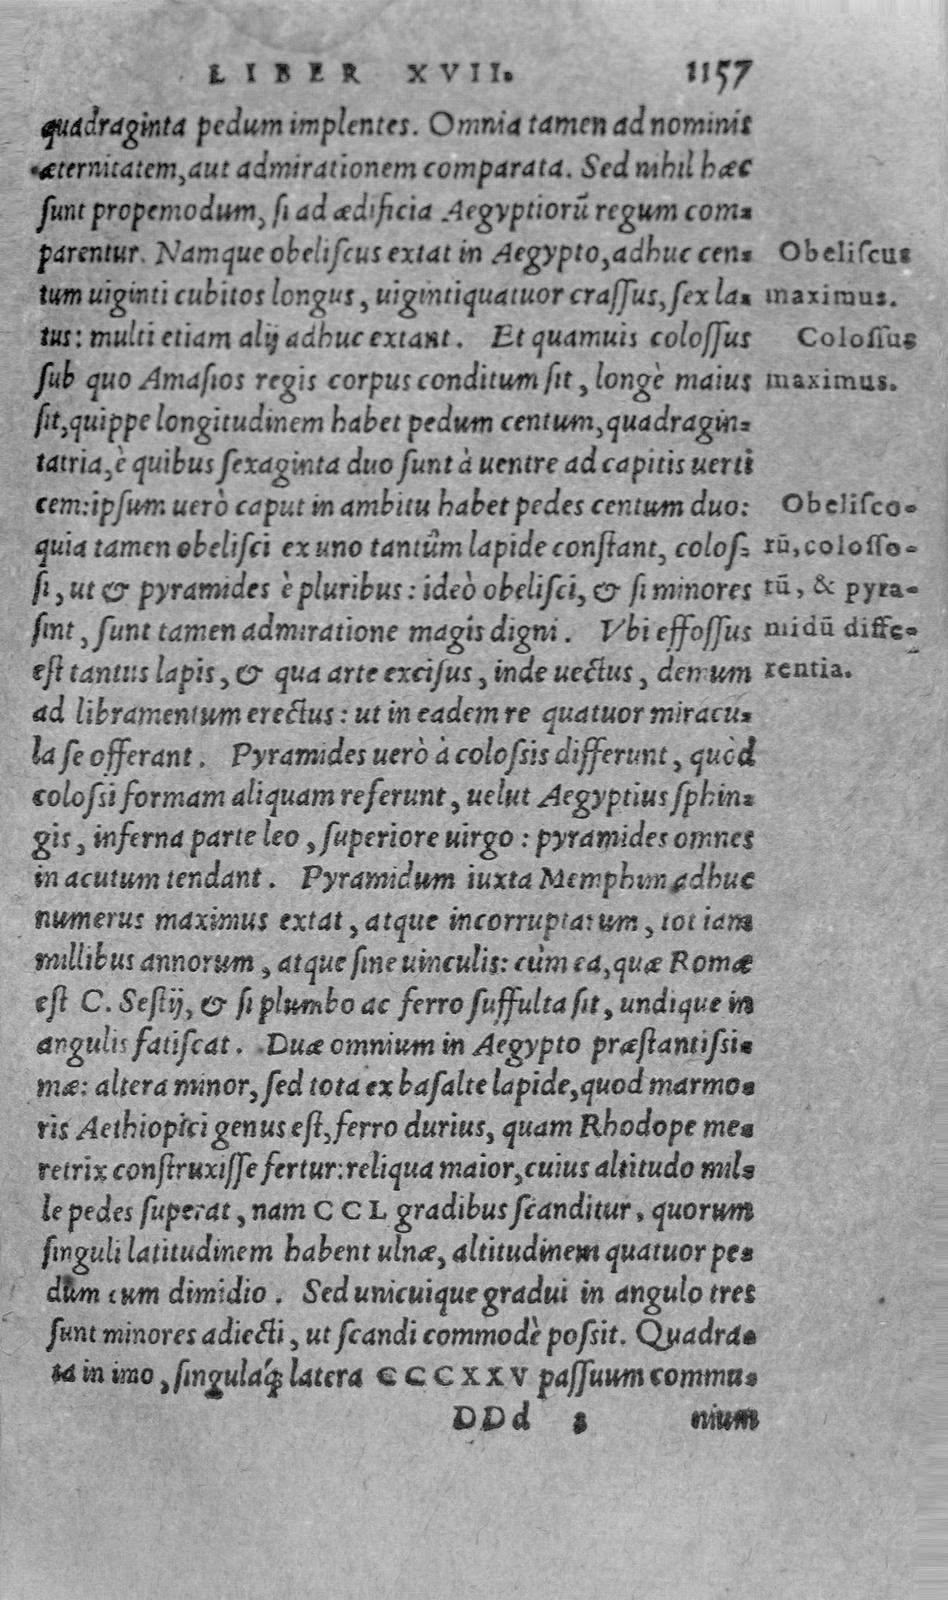 LIBER XVII. 1157
quadraginta pedum implentes. Omnia tamen ad nominis
æternitatem, aut admirationem comparata. Sed nihil hæc
ſunt propemodum, ſi ad ædificia Aegyptiorū regum com-
parentur. Namque obeliſcus extat in Aegypto, adhuc cen-
tum uiginti cubitos longus, uigintiquatuor craſſus, ſex la-
tus: multi etiam alij adhuc extant. Et quamuis coloſſus
ſub quo Amaſios regis corpus conditum ſit, longè maius
ſit, quippe longitudinem habet pedum centum, quadragin-
tatria, è quibus ſexaginta duo ſunt à uentre ad capitis uerti
cem: ipſum uerò caput in ambitu habet pedes centum duo:
quia tamen obeliſci ex uno tantùm lapide conſtant, coloſ-
ſi, ut & pyramides è pluribus: ideò obeliſci, & ſi minores
ſint, ſunt tamen admiratione magis digni. Vbi effoſſus
eſt tantus lapis, & qua arte exciſus, inde uectus, demum
ad libramentum erectus: ut in eadem re quatuor miracu-
la ſe offerant. Pyramides uerò à coloſsis differunt, quòd
coloſsi formam aliquam referunt, uelut Aegyptius ſphin-
gis, inferna parte leo, ſuperiore uirgo: pyramides omnes
in acutum tendant. Pyramidum iuxta Memphim adhuc
numerus maximus extat, atque incorruptarum, tot iam
millibus annorum, atque ſine uinculis: cùm ea, quæ Romæ
eſt C. Seſtij, & ſi plumbo ac ferro ſuffulta ſit, undique in
angulis fatiſcat. Duæ omnium in Aegypto præſtantiſsi-
mæ: altera minor, ſed tota ex baſalte lapide, quod marmo-
ris Aethiopici genus eſt, ferro durius, quam Rhodope me-
retrix conſtruxiſſe fertur: reliqua maior, cuius altitudo mil-
le pedes ſuperat, nam CCL gradibus ſcanditur, quorum
ſinguli latitudinem habent ulnæ, altitudinem quatuor pe-
dum cum dimidio. Sed unicuique gradui in angulo tres
ſunt minores adiecti, ut ſcandi commodè poſsit. Quadra-
ta in imo, ſingulaq́; latera CCCXXV paſſuum commu-
DDd s nium
Obeliſcus
maximus.
Coloſſus
maximus.
Obeliſco-
rū, coloſſo-
rū, & pyra-
midū diffe-
rentia.